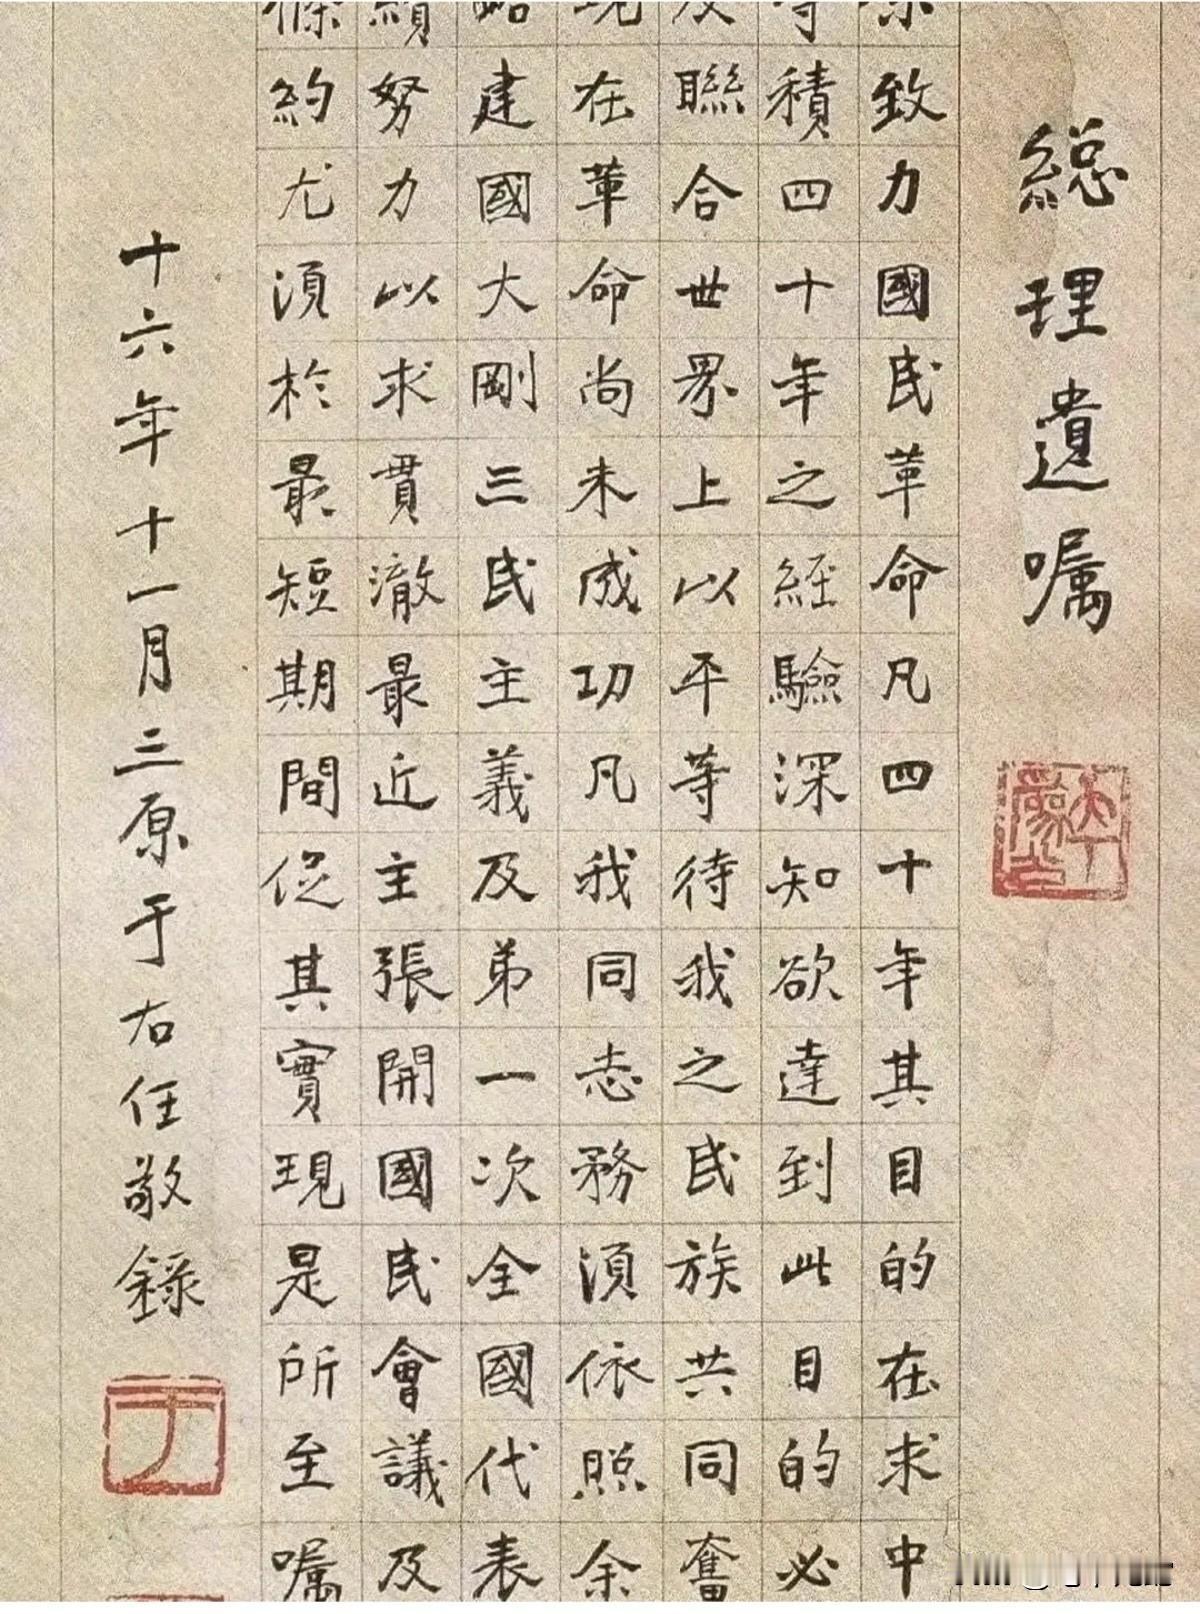 総理遺嘱
余致力國民革命凡四十年其目的在求中
等積四十年之經驗深知欲達到此目的必
及聯合世界上以平等待我之民族共同奮
現在革命尚未成功凡我同志務須依照余
略建國大剛三民主義及弟一次全國代表
續努力以求貫澈最近主張開國民會議及
條約尤須於最短期間促其實現是所至嘱
十六年十一月三原于右任敬錄
于